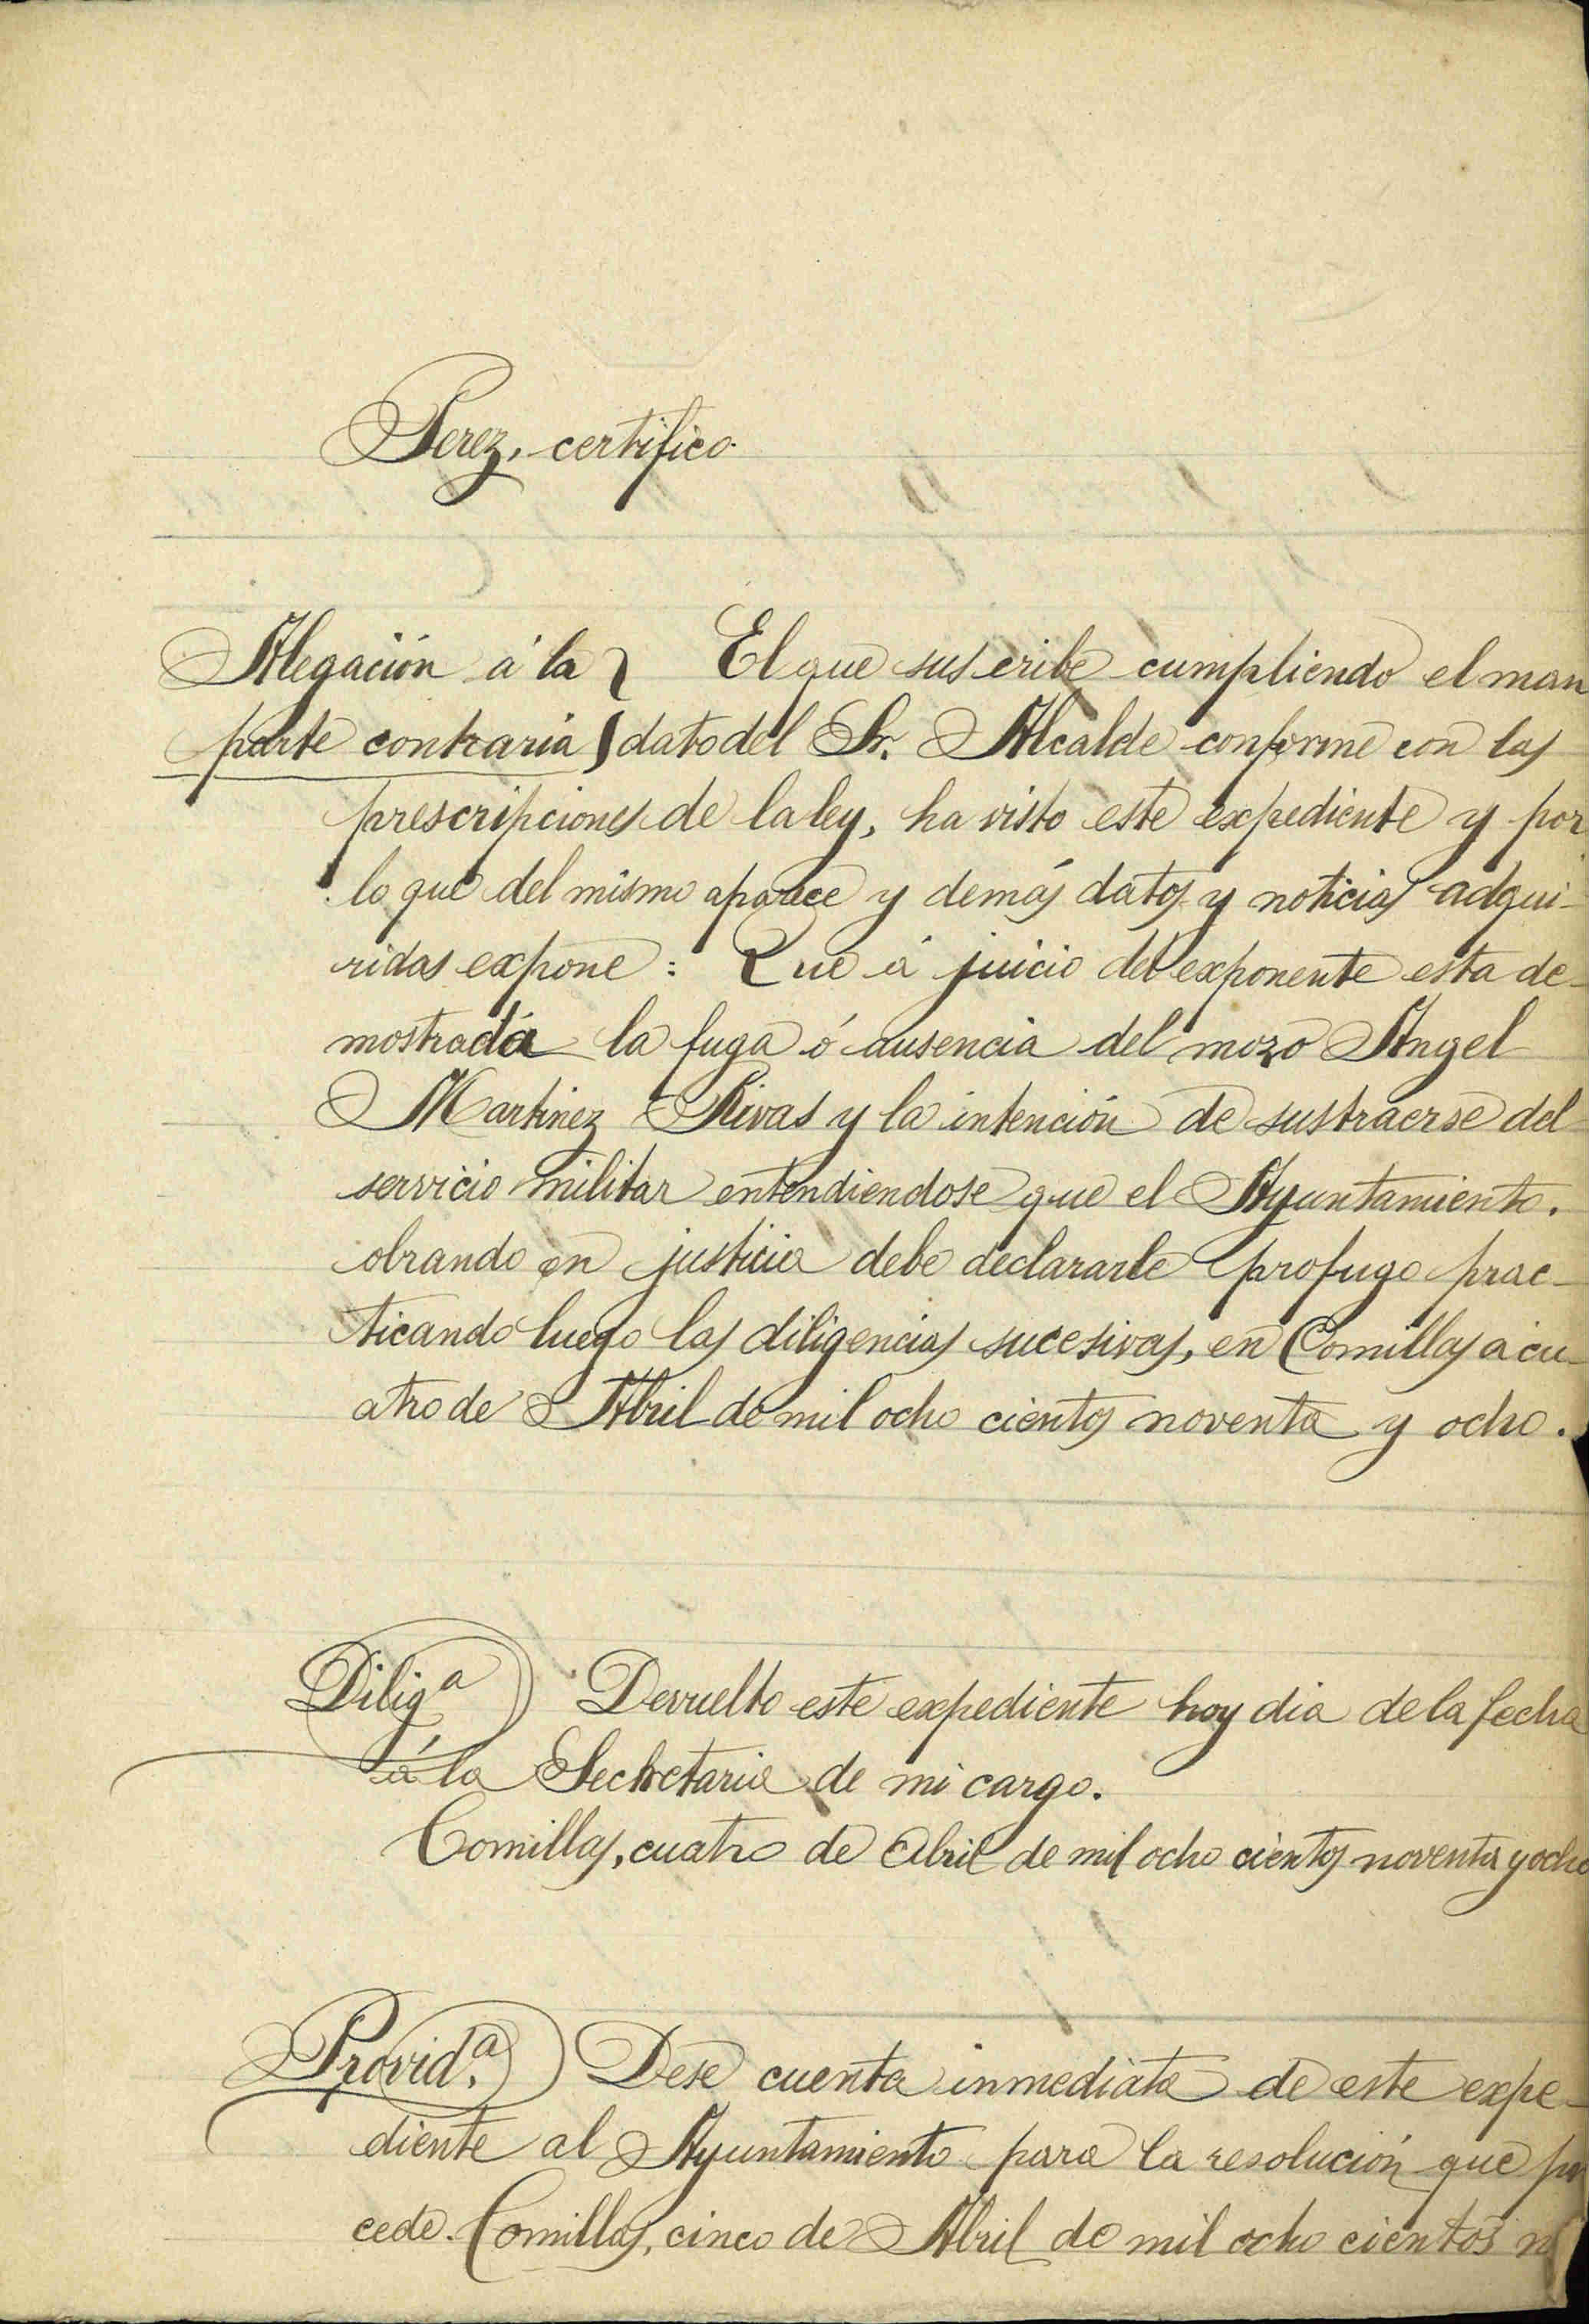 Perez, certifico.
Alegación á la } El que suscribe cumpliendo el man
parte contraria } dato del Sr. Alcalde conforme con las
prescripciones de la ley, ha visto este expediente y por
lo que del mismo aparece y demás datos y noticias adqui-
ridas expone: Que á juicio del exponente esta de-
mostrada la fuga ó ausencia del mozo Angel
Martinez Rivas y la intención de sustraerse del
servicio militar entendiendose que el Ayuntamiento.
obrando en justicia debe declararle profugo prac-
ticando luego las diligencias sucesivas, en Comillas a cu-
atro de Abril de mil ocho cientos noventa y ocho.
Diligª) Devuelto este expediente hoy dia de la fecha
á la Secretaria de mi cargo.
Comillas, cuatro de Abril de mil ocho cientos noventa y ocho
Provid.ª) Dese cuenta inmediata de este expe-
diente al Ayuntamiento para la resolución que pro
cede. Comillas, cinco de Abril de mil ocho cientos n